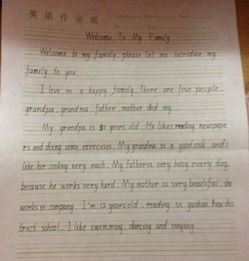 英语作业纸
Welcome To My Family
Welcome to my family. please let me introduce my
family to you.
I live in a happy family. There are five people.
grandpa, grandma, father, mother and my.
My grandpa is years old. He likes reading newspape
rs and doing some exercises. My grandma is a good cook. and I
like her cooking very much. My father is very busy every day,
because he works very hard. My mother is very beautiful. she
works in company. I'm 12 years old. reading in
trict school. I like swimming, dancing and singing.